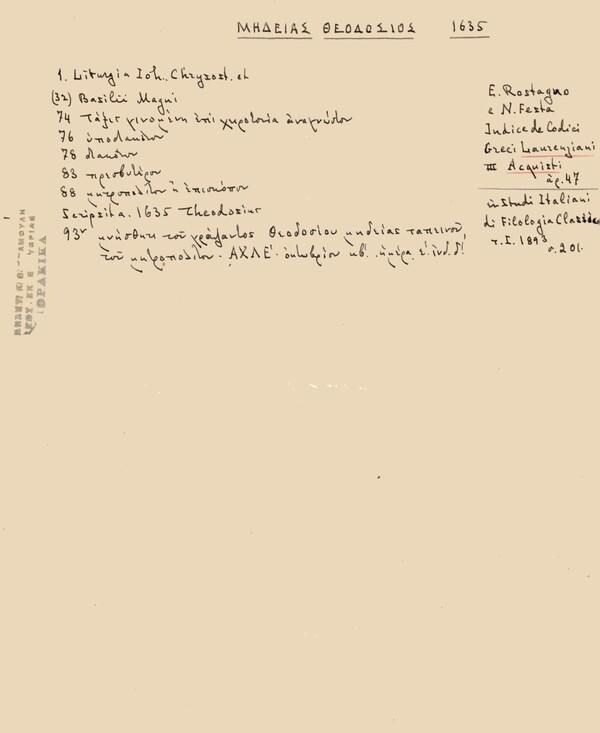 ΜΗΔΕΙΑΣ ΘΕΟΔΟΣΙΟΣ 1635
1. Liturgia Ioh. Chrysost. et
(32) Basilii Magni
74 Τάξις γινομένη ἐπὶ χειροτονίᾳ ἀναγνώστου
76 ὑποδιακόνου
78 διακόνου
83 πρεσβυτέρου
88 μητροπολίτου ἢ ἐπισκόπου
Scripsit a. 1635 Theodosius
93ʳ μνήσθητι τοῦ γράψαντος Θεοδοσίου μηδείας ταπεινοῦ,
τοῦ μητροπολίτου · ΑΧΛΕ΄ ὀκτωβρίου κβ΄. ἡμέρα ε΄ ἰνδ. δ΄.
E. Rostagno
e N. Festa
Indice de Codici
Greci Laurenziani
III Acquisti
ἀρ. 47
in Studi Italiani
di Filologia Classica
τ. I. 1893
σ. 201.
ΘΡΑΚΙΚΑ